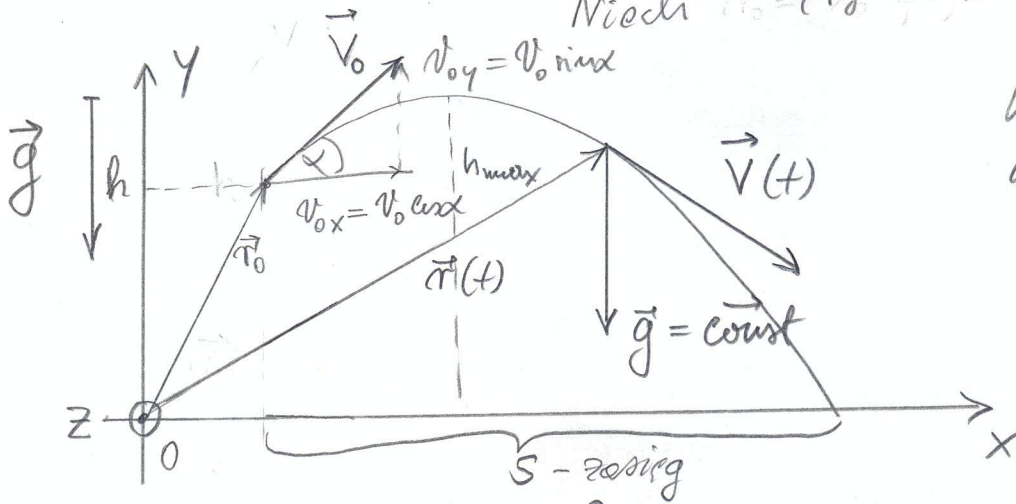 Niech
y
V₀
v₀y = v₀ sinα
g
h
α
hmax
V(t)
v₀x = v₀ cosα
r₀
r(t)
g = const
z
0
x
S - zasięg